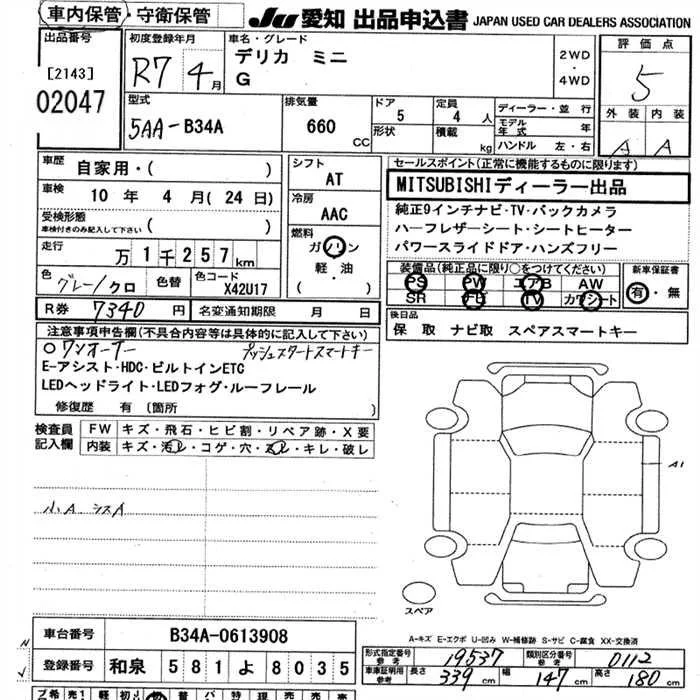 車内保管・守衛保管 JU 愛知 出品申込書 JAPAN USED CAR DEALERS ASSOCIATION
出品番号
[2143]
02047
初度登録年月
R7 4月
車名・グレード
デリカ ミニ
G
2WD
・
4WD
評価点
5
外装 内装
A A
型式
5AA-B34A
排気量
660 CC
ドア
5
形状
定員
4 人
積載
kg
ディーラー・並行
モデル年式 年
ハンドル 左・右
車歴 自家用・( )
車検 10年 4月(24日)
受検形態
車検付きのみ記入して下さい ( )
走行 万1千257km
色 グレー/クロ 色替 色コード X42U17
シフト
AT
冷房
AAC
燃料
ガソリン
軽・油
( ・ )
R券 7340円 名変通知期限 月 日
セールスポイント(正常に機能するものに限ります)
MITSUBISHIディーラー出品
純正9インチナビ・TV・バックカメラ
ハーフレザーシート・シートヒーター
パワースライドドア・ハンズフリー
装備品(純正品に限り○をつけてください) 新車保証書
PS PW エアB AW
SR ナビ TV カワシート
有・無
後日品
保 取 ナビ取 スペアスマートキー
注意事項申告欄(不具合内容等は具体的に記入して下さい)
○ワンオーナー プッシュスタートスマートキー
E-アシスト・HDC・ビルトインETC
LEDヘッドライト・LEDフォグ・ルーフレール
修復歴 有(箇所 )
検査員記入欄
FW キズ・飛石・ヒビ割・リペア跡・X要
内装 キズ・汚レ・コゲ・穴・スレ・キレ・破レ
小A
A1
スペア
A-キズ E-エクボ U-凹み W-補修跡 S-サビ C-腐食 XX-交換済
車台番号 B34A-0613908
登録番号 和泉 581よ8035
形式指定番号 参考 19537 類別区分番号 参考 0112
車庫証明用 参考 長さ 339cm 幅 147cm 高さ 180cm